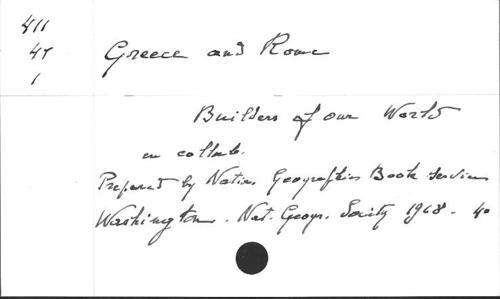 411
47
1
Greece and Rome
Builders of our World
en collab.
Prepared by Nation. Geographics Book Service
Washington. Nat. Geogr. Society 1968. 40